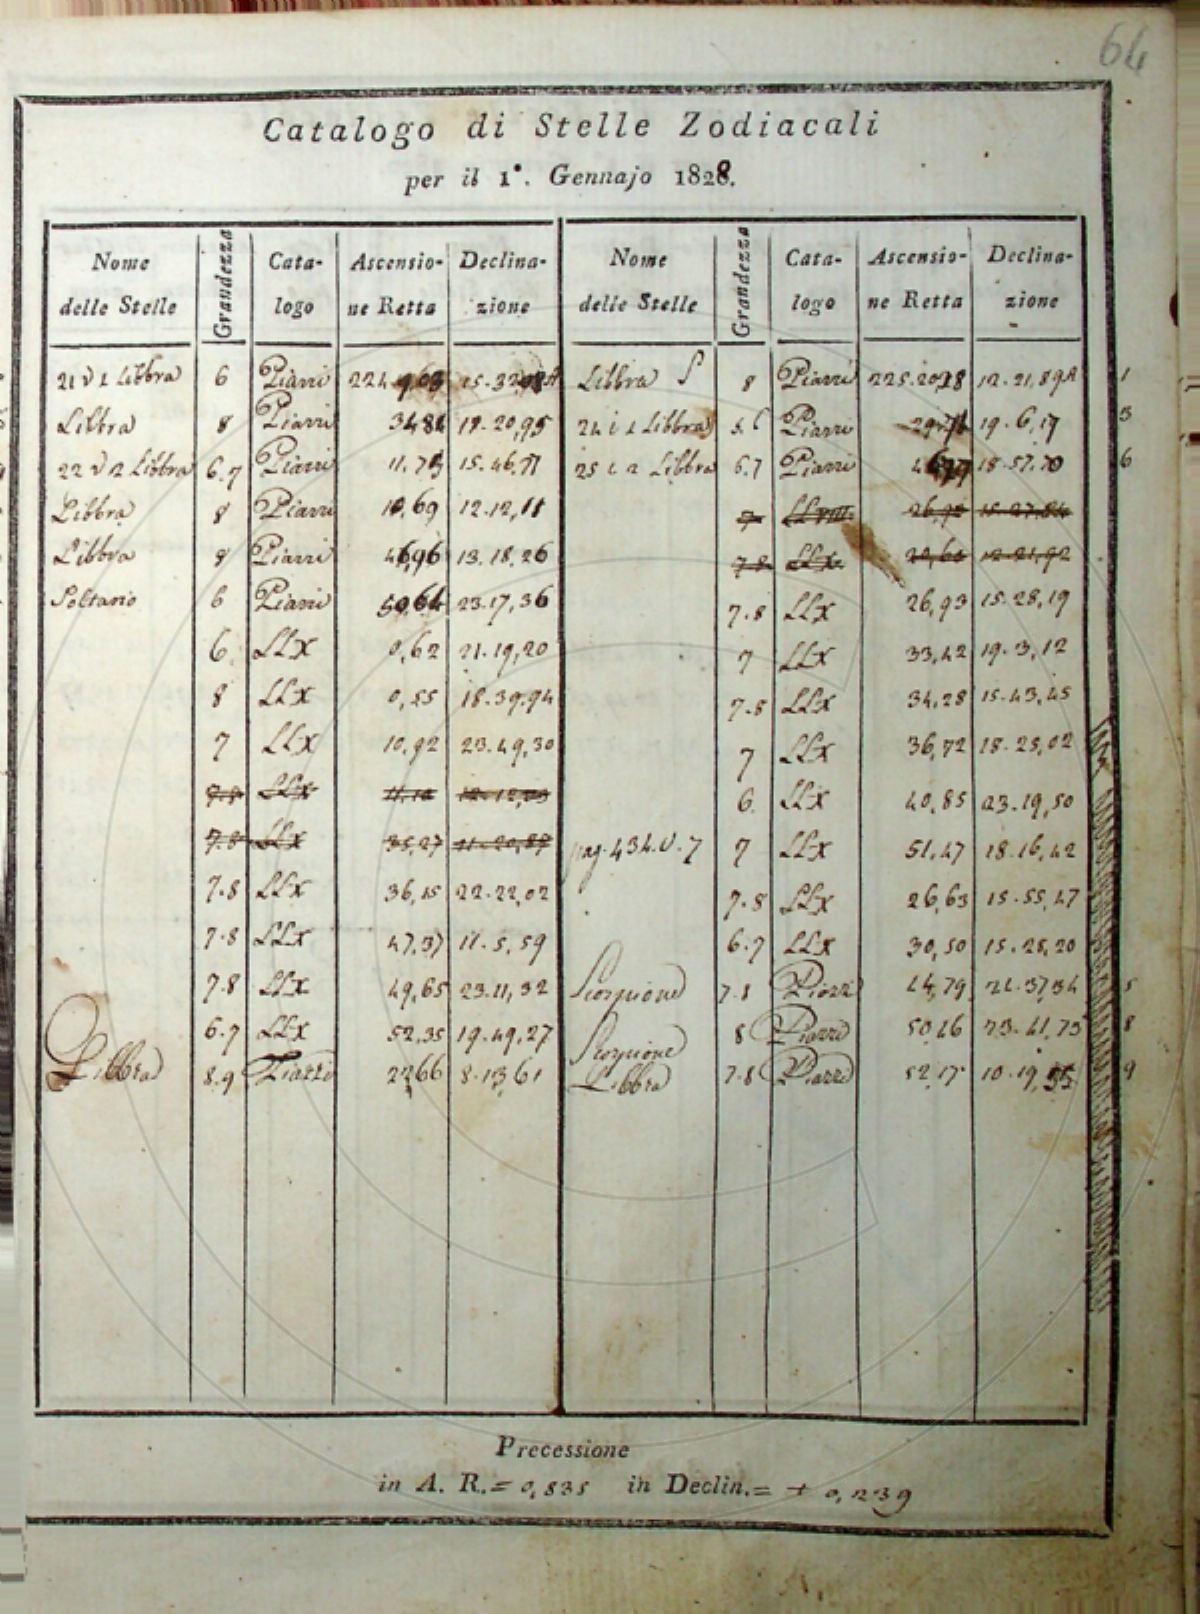 64
Catalogo di Stelle Zodiacali
per il 1°. Gennajo 1828.
Nome delle Stelle Grandezza Cata-logo Ascensio-ne Retta Declina-zione Nome delle Stelle Grandezza Cata-logo Ascensio-ne Retta Declina-zione
21 ν 1 Libbra 6 Piazzi 224. 15.32 Libbra S 8 Piazzi 12.21,89A 1
Libbra 8 Piazzi 19.20,95 24 ι 1 Libbra Piazzi 19.6,17
22 ν 2 Libbra 6.7 Piazzi 15.46,71 25 ι 2 Libbra 6.7 Piazzi 18.57,70 6
Libbra 8 Piazzi 10,69 12.12,11 7 26,92 15.27,84
Libbra 8 Piazzi 46,96 13.18,26 7.8 LLX 12.21,92
Soltario 6 Piazzi 50,64 23.17,36 7.8 LLX 26,93 15.28,19
6 LLX 0,62 21.19,20 7 LLX 33,42 19.3,12
8 LLX 0,55 18.39,94 7.8 LLX 34,28 15.43,45
7 LLX 10,92 23.49,30 7 LLX 36,72 18.25,02
7.8 LLX 11,12 6 LLX 40,85 23.19,50
7.8 LLX 35,27 11.20,87 pag.434.v.7 7 LLX 51,47 18.16,42
7.8 LLX 36,15 22.22,02 7.8 LLX 26,63 15.55,47
7.8 LLX 47,37 11.5,59 6.7 LLX 30,50 15.25,20
7.8 LLX 49,65 23.11,32 Scorpione 7.8 Piazzi 44,79 5
6.7 LLX 52,35 19.49,27 Scorpione 8 Piazzi 50,16 23.41,73 8
Libbra 8.9 Piazzi 8.13,61 Libbra 7.8 Piazzi 52,17 10.19,55 9
Precessione
in A. R. = 0,835 in Declin. = + 0,239